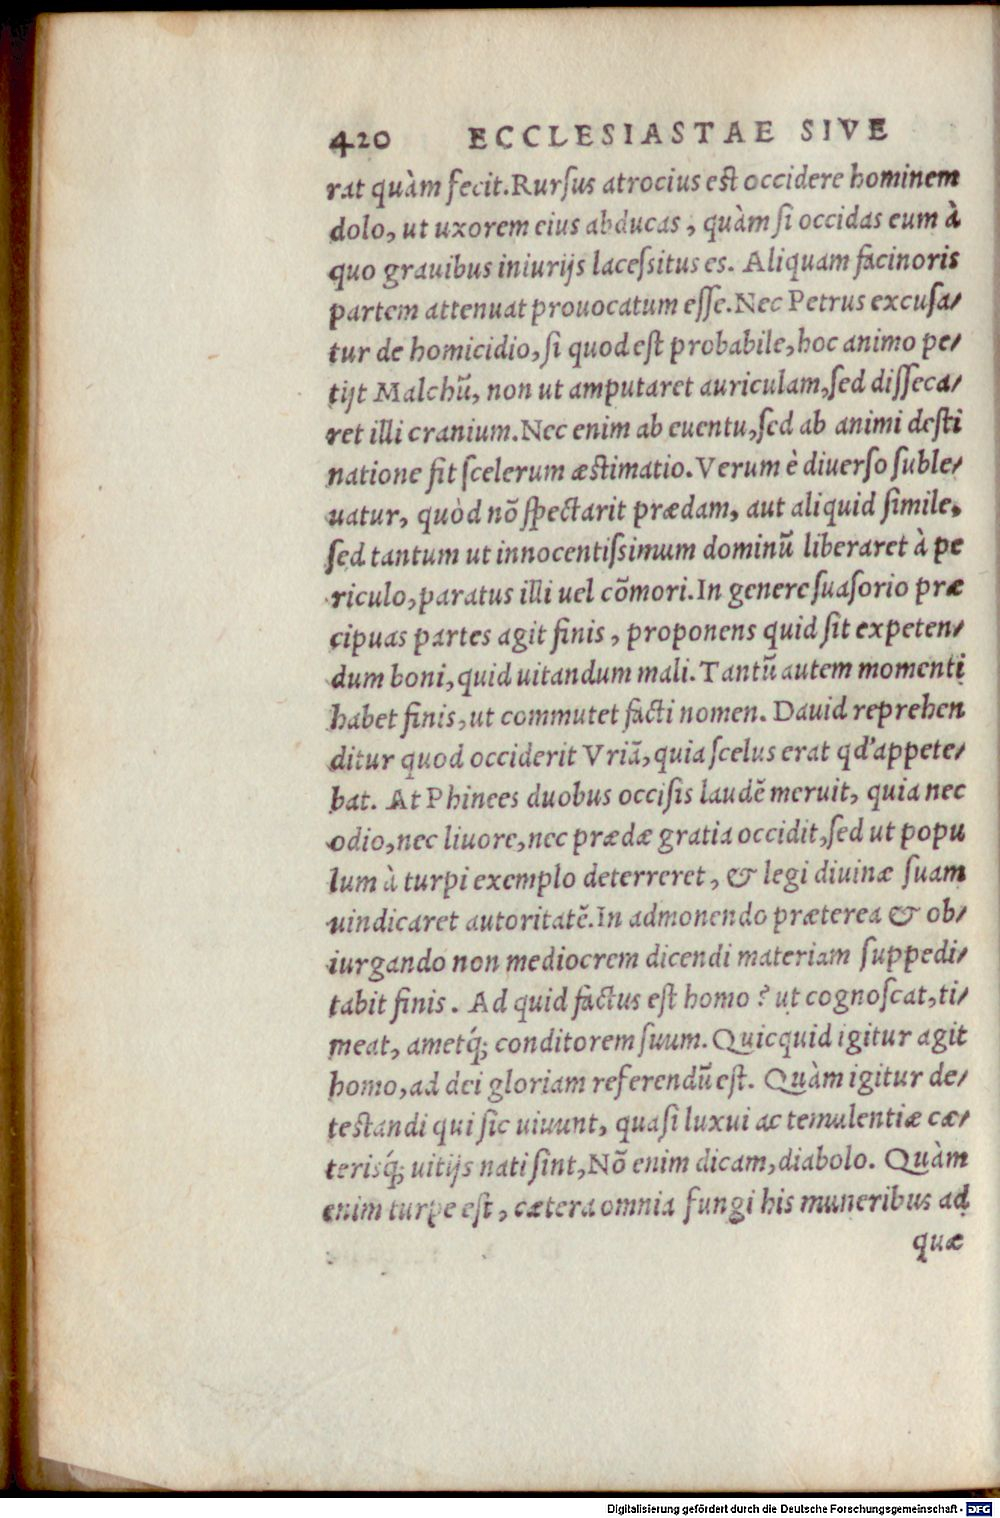 420 ECCLESIASTAE SIVE
rat quàm fecit. Rurſus atrocius eſt occidere hominem
dolo, ut uxorem eius abducas, quàm ſi occidas eum à
quo grauibus iniurijs laceſsitus es. Aliquam facinoris
partem attenuat prouocatum eſſe. Nec Petrus excuſa/
tur de homicidio, ſi quod eſt probabile, hoc animo pe/
tijt Malchũ, non ut amputaret auriculam, ſed diſſeca/
ret illi cranium. Nec enim ab euentu, ſed ab animi deſti
natione fit ſcelerum æſtimatio. Verum è diuerſo ſuble/
uatur, quòd nõ ſpectarit prædam, aut aliquid ſimile,
ſed tantum ut innocentiſsimum dominũ liberaret à pe
riculo, paratus illi uel cõmori. In genere ſuaſorio præ
cipuas partes agit finis, proponens quid ſit expeten/
dum boni, quid uitandum mali. Tantũ autem momenti
habet finis, ut commutet facti nomen. Dauid reprehen
ditur quod occiderit Vriã, quia ſcelus erat qd' appete/
bat. At Phinees duobus occiſis laudẽ meruit, quia nec
odio, nec liuore, nec prædæ gratia occidit, ſed ut popu
lum à turpi exemplo deterreret, & legi diuinæ ſuam
uindicaret autoritatẽ. In admonendo præterea & ob/
iurgando non mediocrem dicendi materiam ſuppedi/
tabit finis. Ad quid factus eſt homo? ut cognoſcat, ti/
meat, ametq́; conditorem ſuum. Quicquid igitur agit
homo, ad dei gloriam referendũ eſt. Quàm igitur de/
teſtandi qui ſic uiuunt, quaſi luxui ac temulentiæ cæ/
terisq́; uitijs nati ſint, Nõ enim dicam, diabolo. Quàm
enim turpe eſt, cætera omnia fungi his muneribus ad
quæ
Digitalisierung gefördert durch die Deutsche Forschungsgemeinschaft - DFG